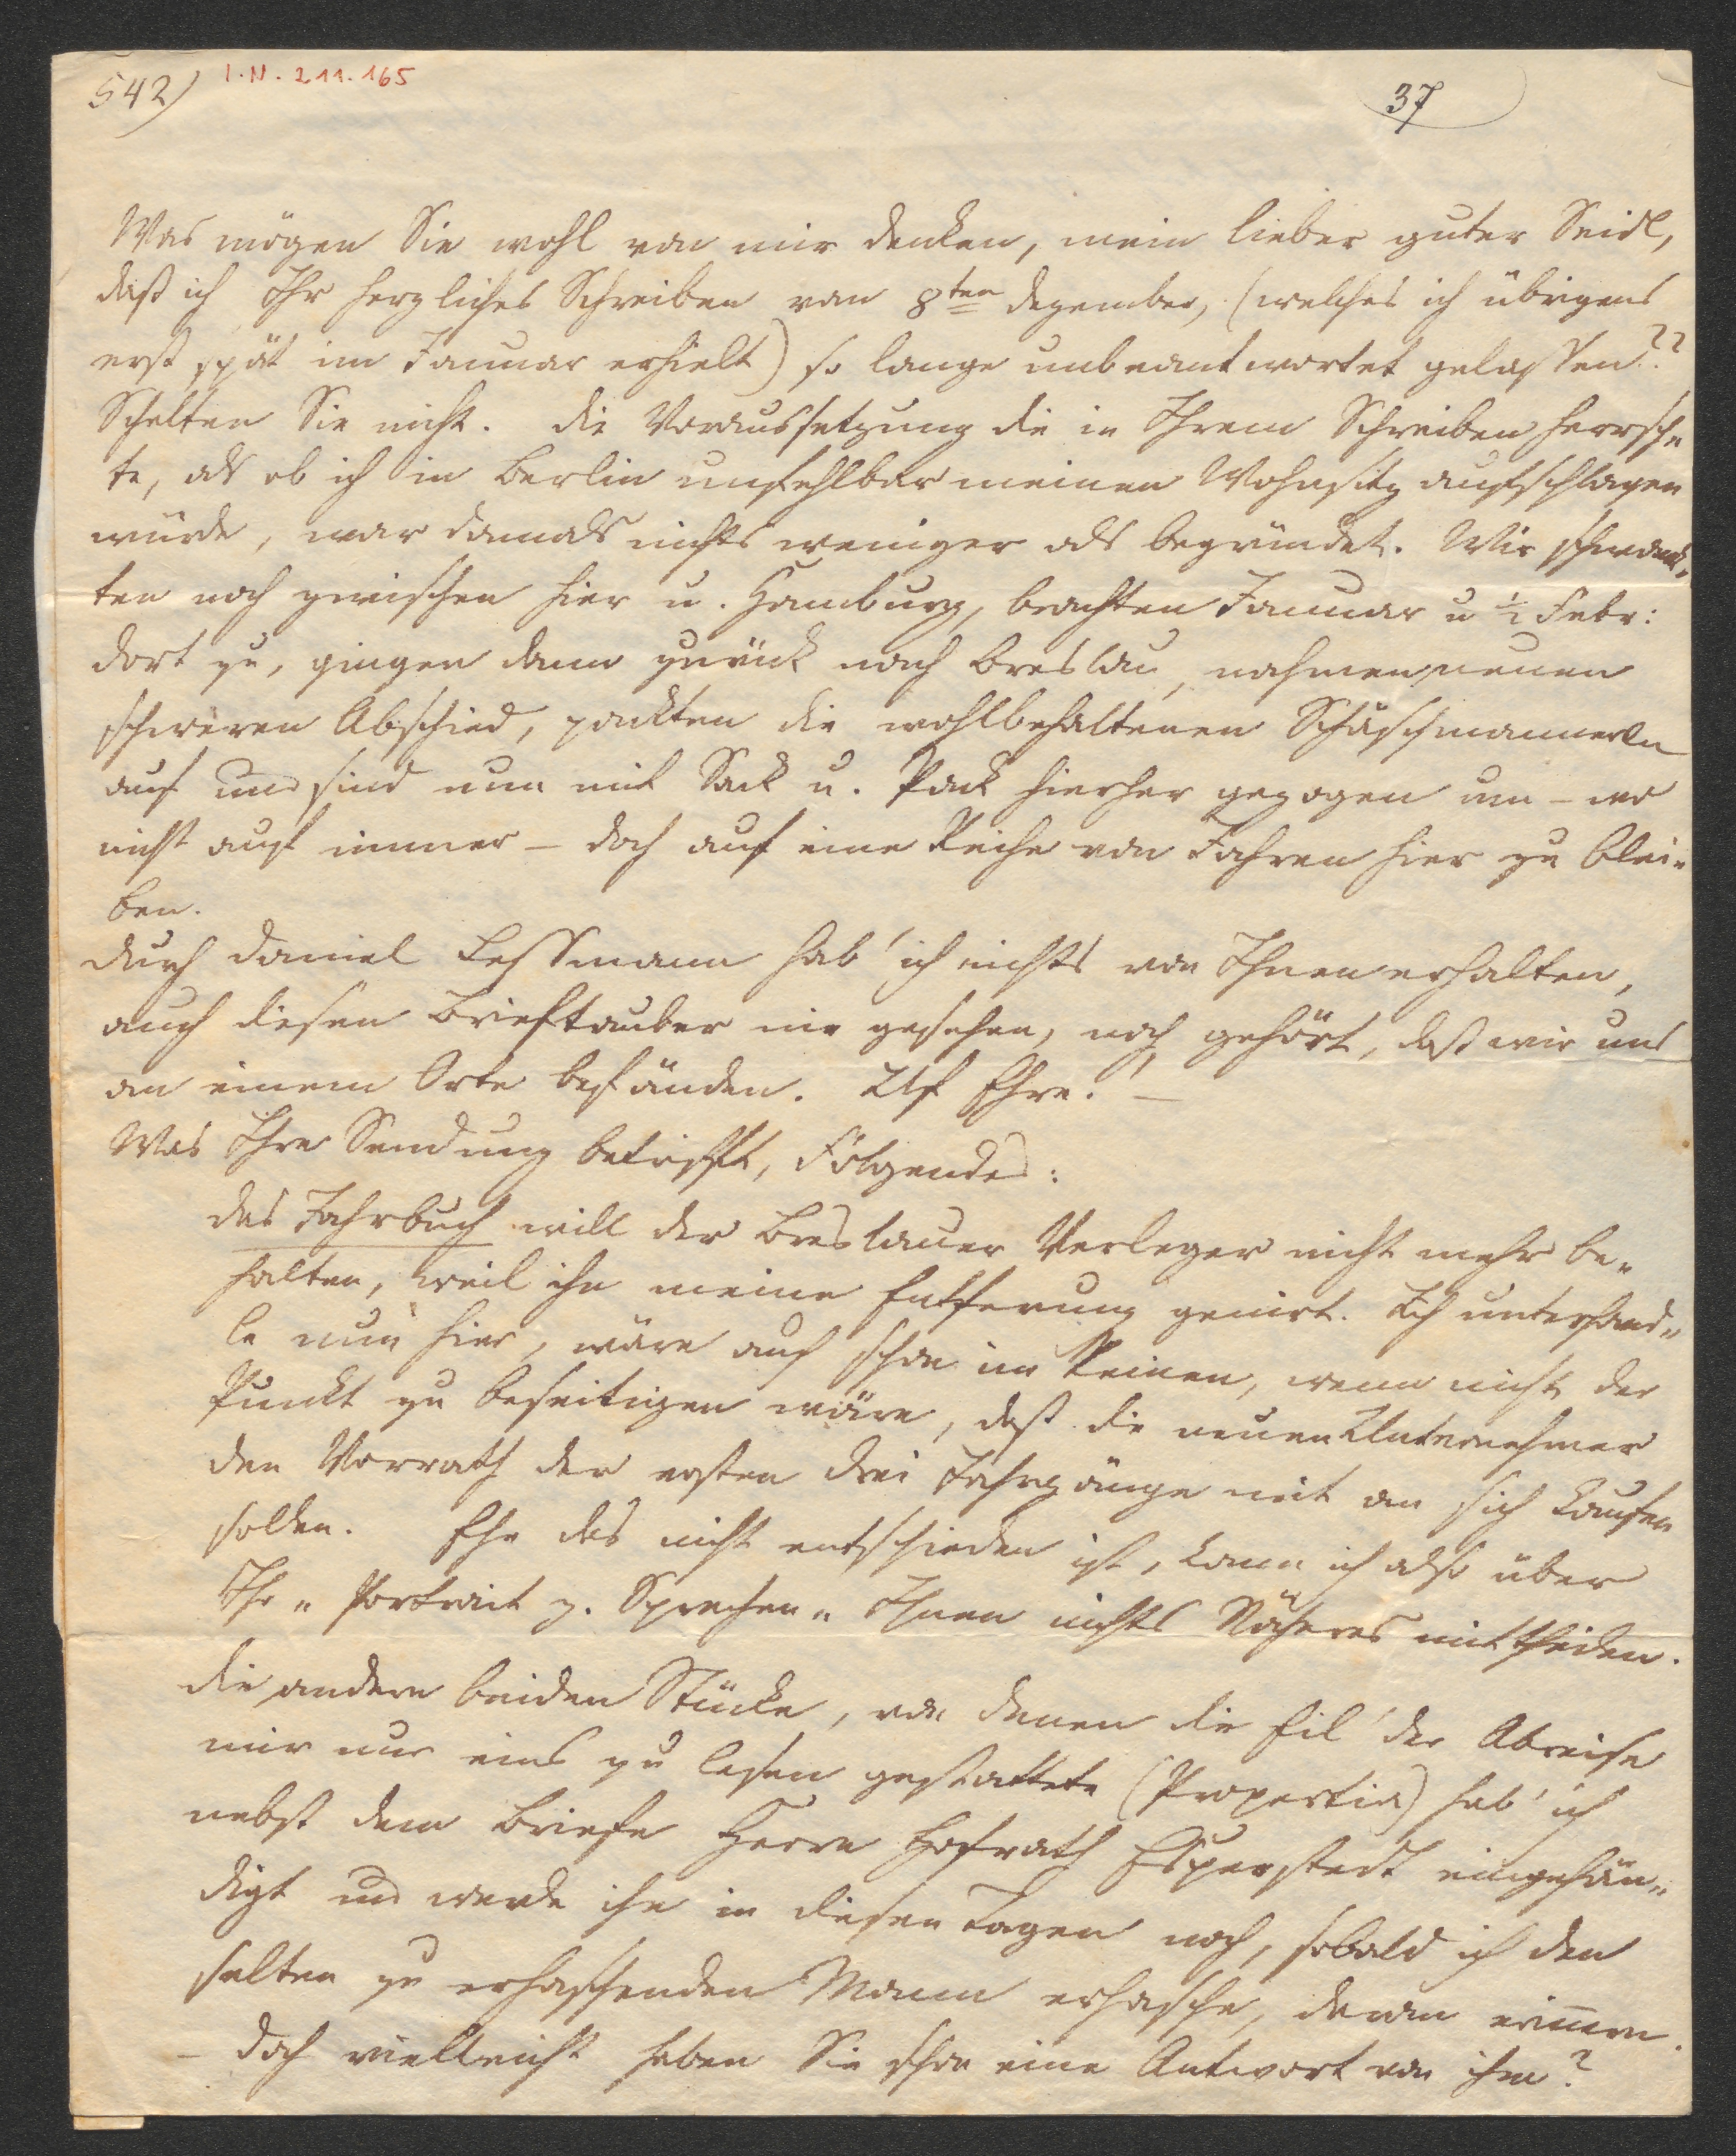 542) I.N. 211.165
37
Was mögen Sie wohl von mir denken, mein lieber guter Seidl,
daß ich Ihr herzliches Schreiben vom 8ten Dezember, (welches ich übrigens
erst spät im Januar erhielt) so lange unbeantwortet gelassen??
Schelten Sie nicht. Die Voraussetzung die in Ihrem Schreiben herrsch-
te, als ob ich in Berlin unfehlbar meinen Wohnsitz aufschlagen
würde, war damals nichts weniger als begründet. Wir schwank-
ten noch zwischen hier u. Hamburg, brachten Januar u ½ Febr:
dort zu, gingen dann zurück nach Breslau, nahmen neuen
schweren Abschied, packten die wohlbehaltenen
auf und sind nun mit Sack u. Pack hierher gezogen um – wo
nicht auf immer – doch auf eine Reihe von Jahren hier zu blei-
ben.
Durch Daniel Lessmann hab' ich nichts von Ihnen erhalten,
auch diesen Brieftauber nie gesehen, noch gehört, daß wir uns
an einem Orte befänden. Uf Ehre! –
Was Ihre Sendung betrifft, Folgendes:
Das Jahrbuch will der Breslauer Verleger nicht mehr be-
halten, weil ihn meine Entfernung genirt. Ich unterhand-
le nun hier, wäre auch schon im Reinen, wenn nicht der
Punkt zu beseitigen wäre, daß die neuen Unternehmer
den Vorrath der ersten drei Jahrgänge mit an sich kaufen
sollen. Ehe das nicht entschieden ist, kann ich also über
Ihr „Portrait z. Sprechen" Ihnen nichts Näheres mittheilen.
Die andern beiden Stücke, von denen die Eil' der Abreise
mir nur eins zu lesen gestattete (Propertia) hab' ich
nebst dem Briefe Herrn Hofrath Esperstedt eingehän-
digt und werde ihn in diesen Tagen noch, sobald ich den
selten zu erhaschenden Mann erhasche, daran erinnern.
– Doch vielleicht haben Sie schon eine Antwort von ihm?